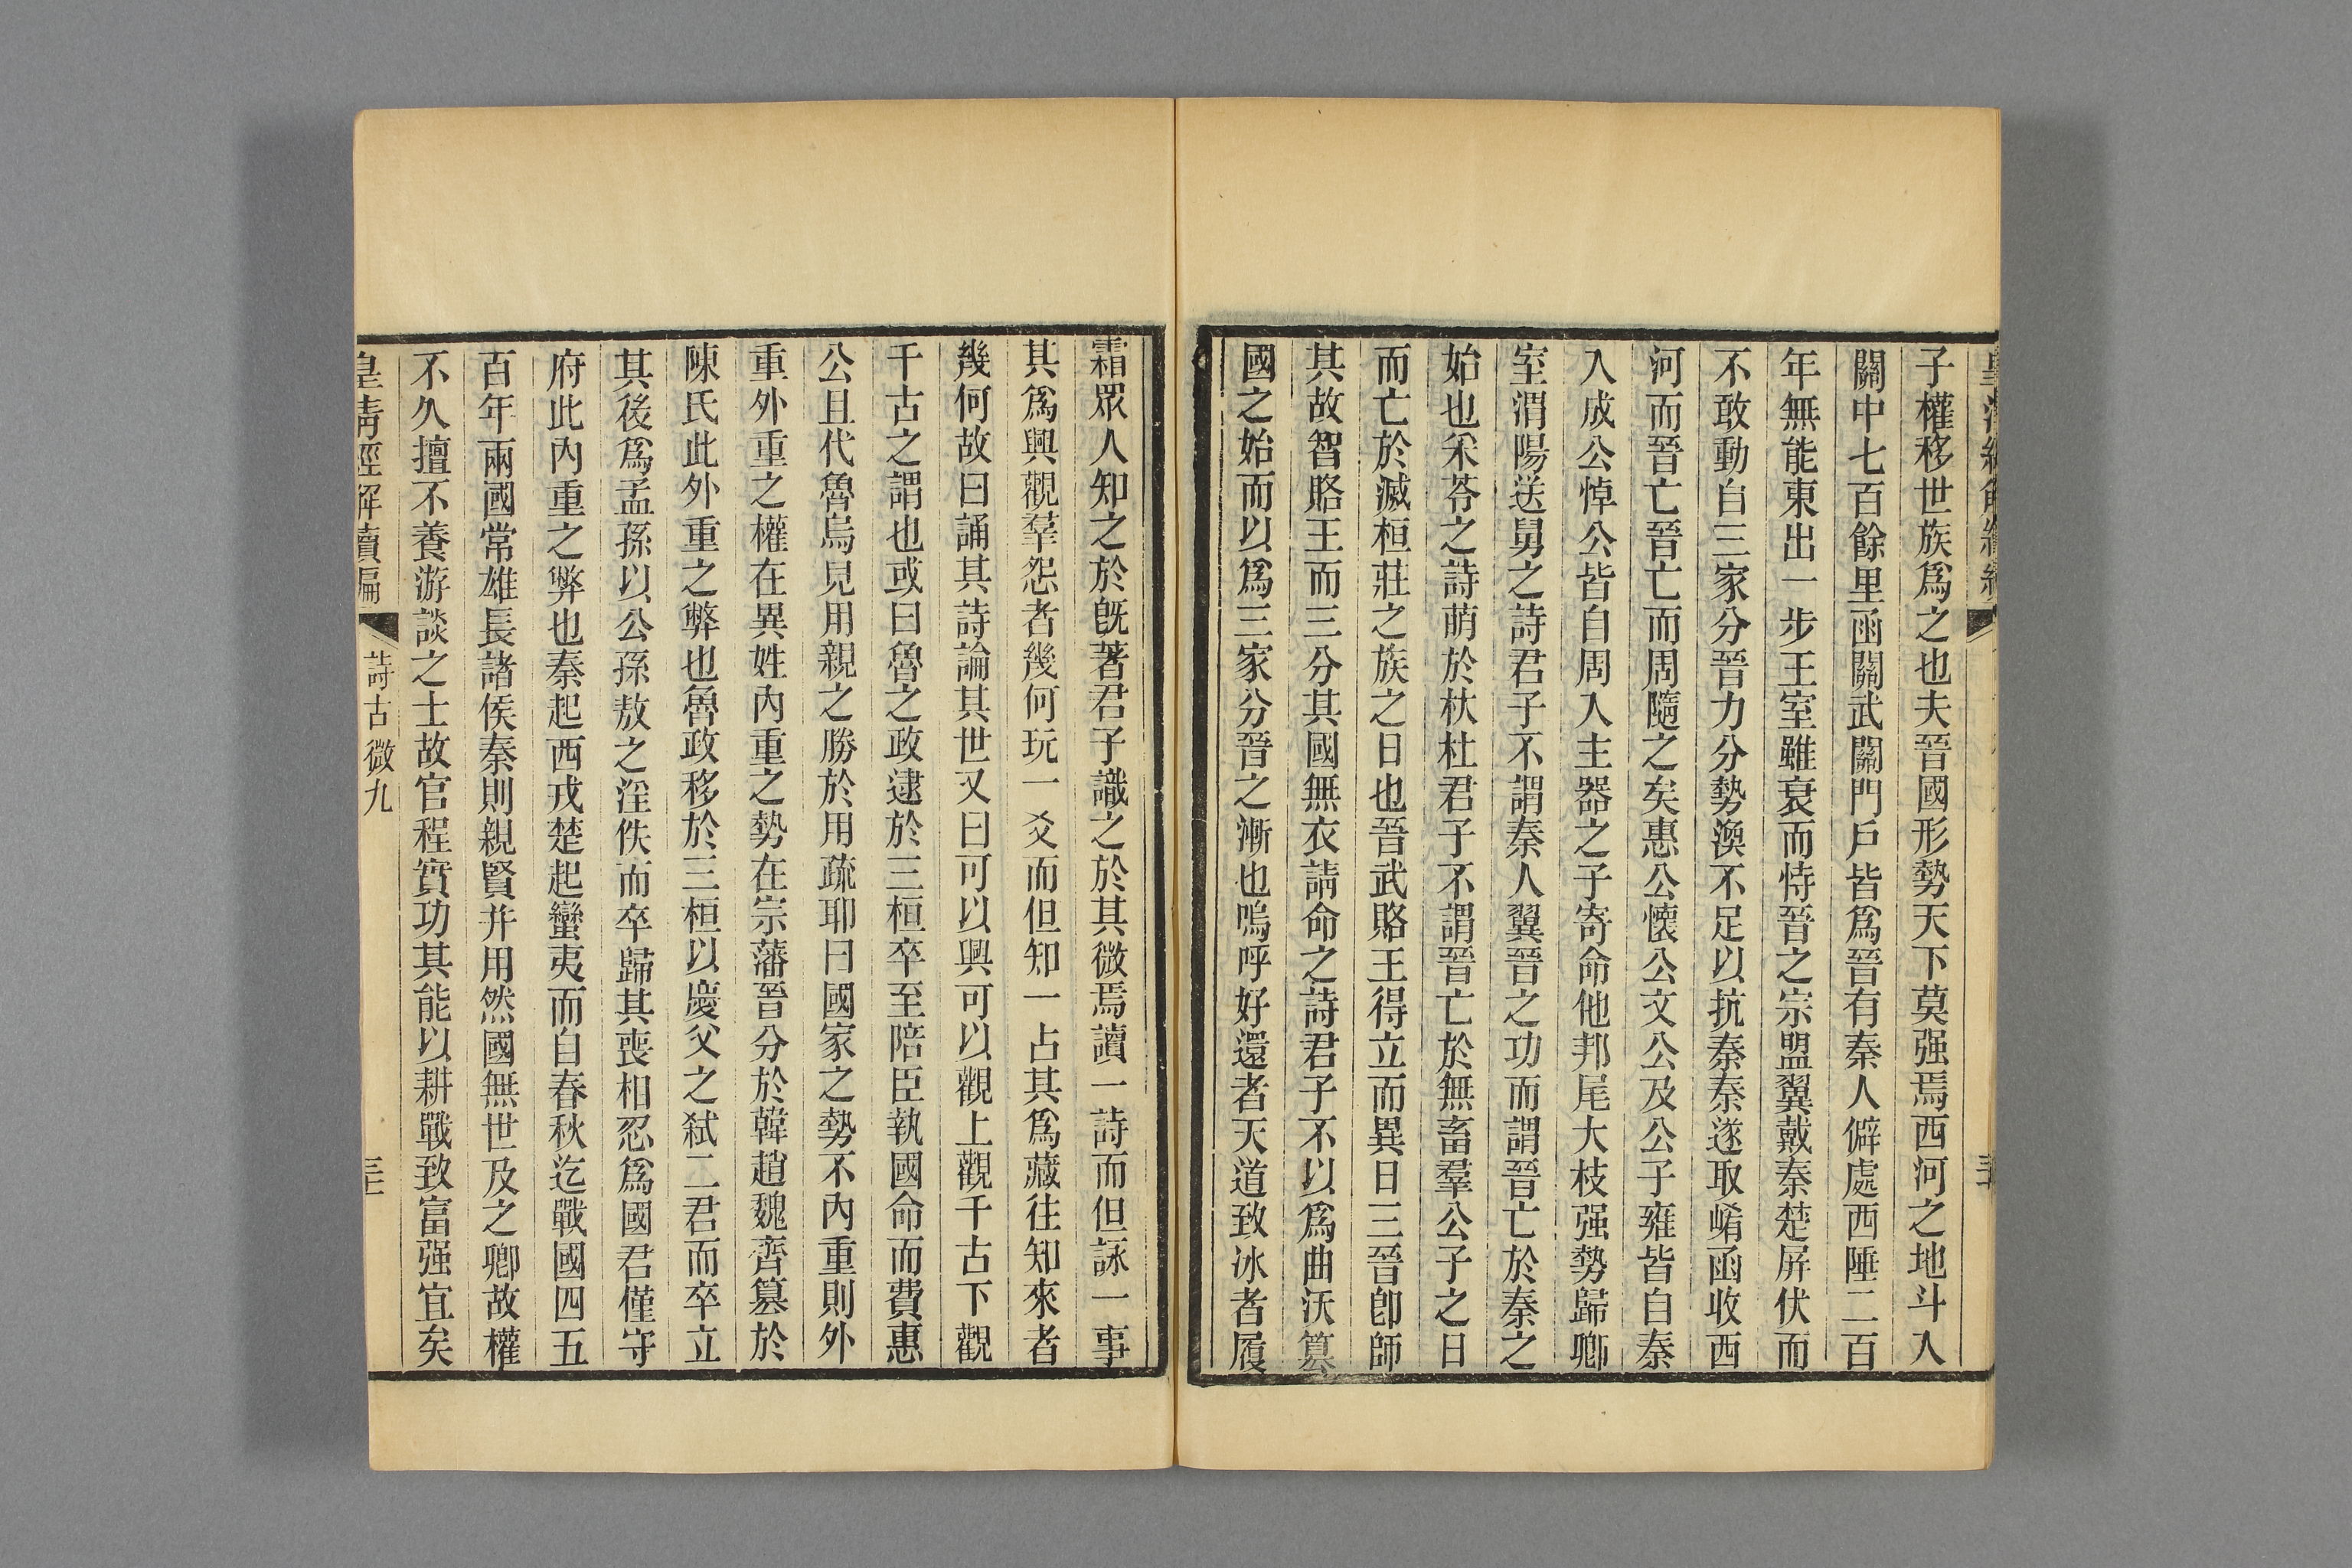 子權移世族爲之也夫晉國形勢天下莫强焉西河之地斗入
關中七百餘里函關武關門戸皆爲晉有秦人僻處西陲二百
年無能東出一步王室雖衰而恃晉之宗盟翼戴秦楚屏伏而
不敢動自三家分晉力分勢渙不足以抗秦秦遂取崤函收西
河而晉亡晉亡而周隨之矣惠公懷公文公及公子雍皆自秦
入成公悼公皆自周入主器之子寄命他邦尾大枝强勢歸卿
室渭陽送舅之詩君子不謂秦人翼晉之功而謂晉亡於秦之
始也采苓之詩萌於杕杜君子不謂晉亡於無畜羣公子之日
而亡於滅桓莊之族之日也晉武賂王得立而異日三晉卽師
其故智賂王而三分其國無衣請命之詩君子不以爲曲沃篡
國之始而以爲三家分晉之漸也嗚呼好還者天道致冰者履
霜眾人知之於旣著君子識之於其微焉讀一詩而但詠一事
其爲興觀羣怨者幾何玩一爻而但知一占其爲藏往知來者
幾何故曰誦其詩論其世又曰可以興可以觀上觀千古下觀
千古之謂也或曰魯之政逮於三桓卒至陪臣執國命而費惠
公且代魯烏見用親之勝於用疏耶曰國家之勢不內重則外
重外重之權在異姓內重之勢在宗藩晉分於韓趙魏齊篡於
陳氏此外重之弊也魯政移於三桓以慶父之弒二君而卒立
其後爲孟孫以公孫敖之淫佚而卒歸其喪相忍爲國君僅守
府此內重之弊也秦起西戎楚起蠻夷而自春秋迄戰國四五
百年兩國常雄長諸侯秦則親賢并用然國無世及之卿故權
不久擅不養游談之士故官程實功其能以耕戰致富强宜矣
皇清經解續編
詩古微九
三二